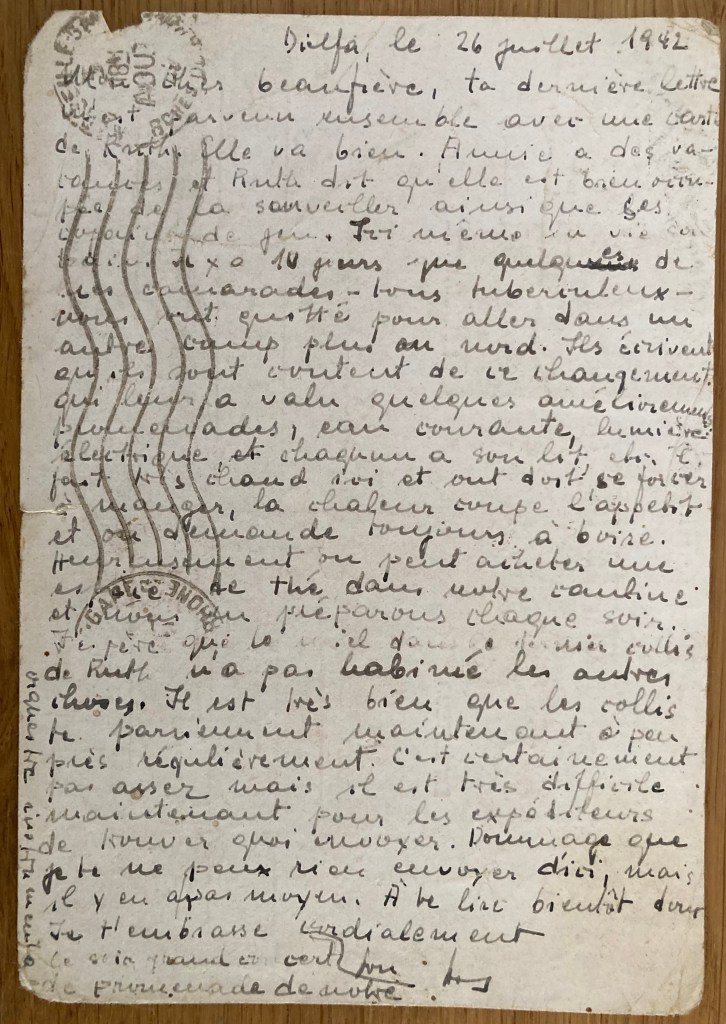 Djlfa, le 26 juillet 1942
beaufrère, ta dernière lettre
parvenu ensemble avec une carte
de Ruth. Elle va bien. Annie a des va-
cances et Ruth dit qu'elle est bien
de la sourveiller ainsi que ses
de jeu. Ici même
10 jours que quelques de
camarades - tous tuberculeux -
nous ont quitté pour aller dans un
autre camp plus au nord. Ils écrivent
qu'ils sont content de ce changement
qui leur a valu quelques
promenades, eau courante, lumière
électrique, et chaqun a son lit, etc. Il
fait très chaud ici et ont doit se forcer
à manger, la chaleur coupe l'appetit
et on demande toujours à boire.
Heureusement on peut acheter une
de thé dans notre cantine
et nous en préparons chaque soir.
J'espère que le miel dans le dernier collis
de Ruth n'a pas habimé les autres
choses. Il est très bien que les collis
te parviennent maintenant à peu
près régulièrement. C'est certainement
pas assez mais il est très difficile
maintenant pour les expéditeurs
de trouver quoi envoyer. Dommage que
je te ne peux rien envoyer d'ici, mais
il y en a pas moyen. À te lire bientôt donc
Je t'embrasse cordialement
ton
Ce soir grand concert
de promenade de notre